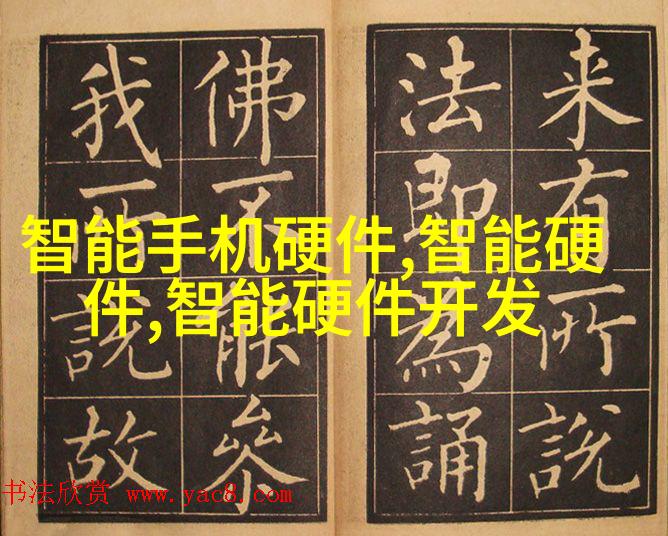 来有所說
法即為誦
佛不能參
我說故
智能手机硬件,智能硬
件,智能硬件开发
书法欣赏 www.yac8.com